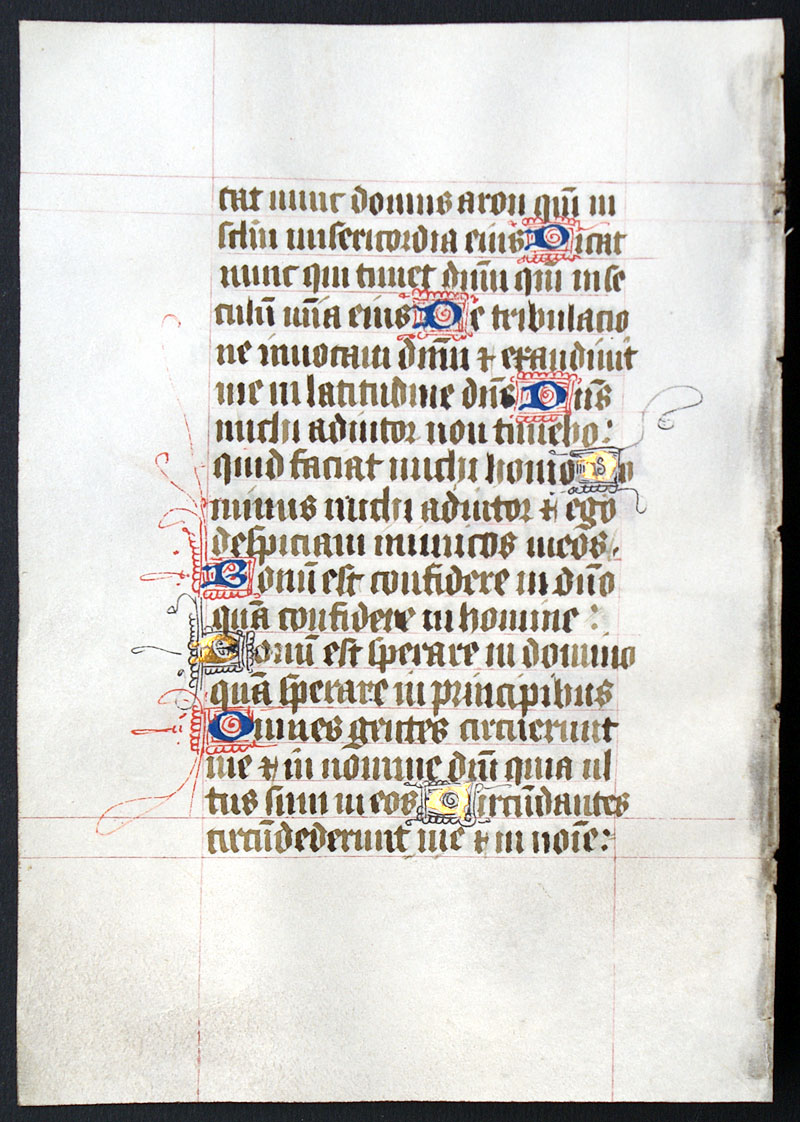 cat nunc domus aron qm̄ in
sclm̄ misericordia eius Dicat
nunc qui timet dnm̄ qm̄ in se
culū mīa eius De tribulacio
ne inuocaui dnm̄ ⁊ exaudiuit
me in latitudine dn̄s Dn̄s
michi adiutor non timebo:
quid faciat michi homo Do
minus michi adiutor ⁊ ego
despiciam inimicos meos.
Bonū est confidere in dn̄o
quā confidere in homine:
Bonū est sperare in domino
quā sperare in principibus
Omnes gentes circuierunt
me ⁊ in nomine dnī quia ul
tus sum in eos Circūdantes
circūdederunt me ⁊ in noīe: